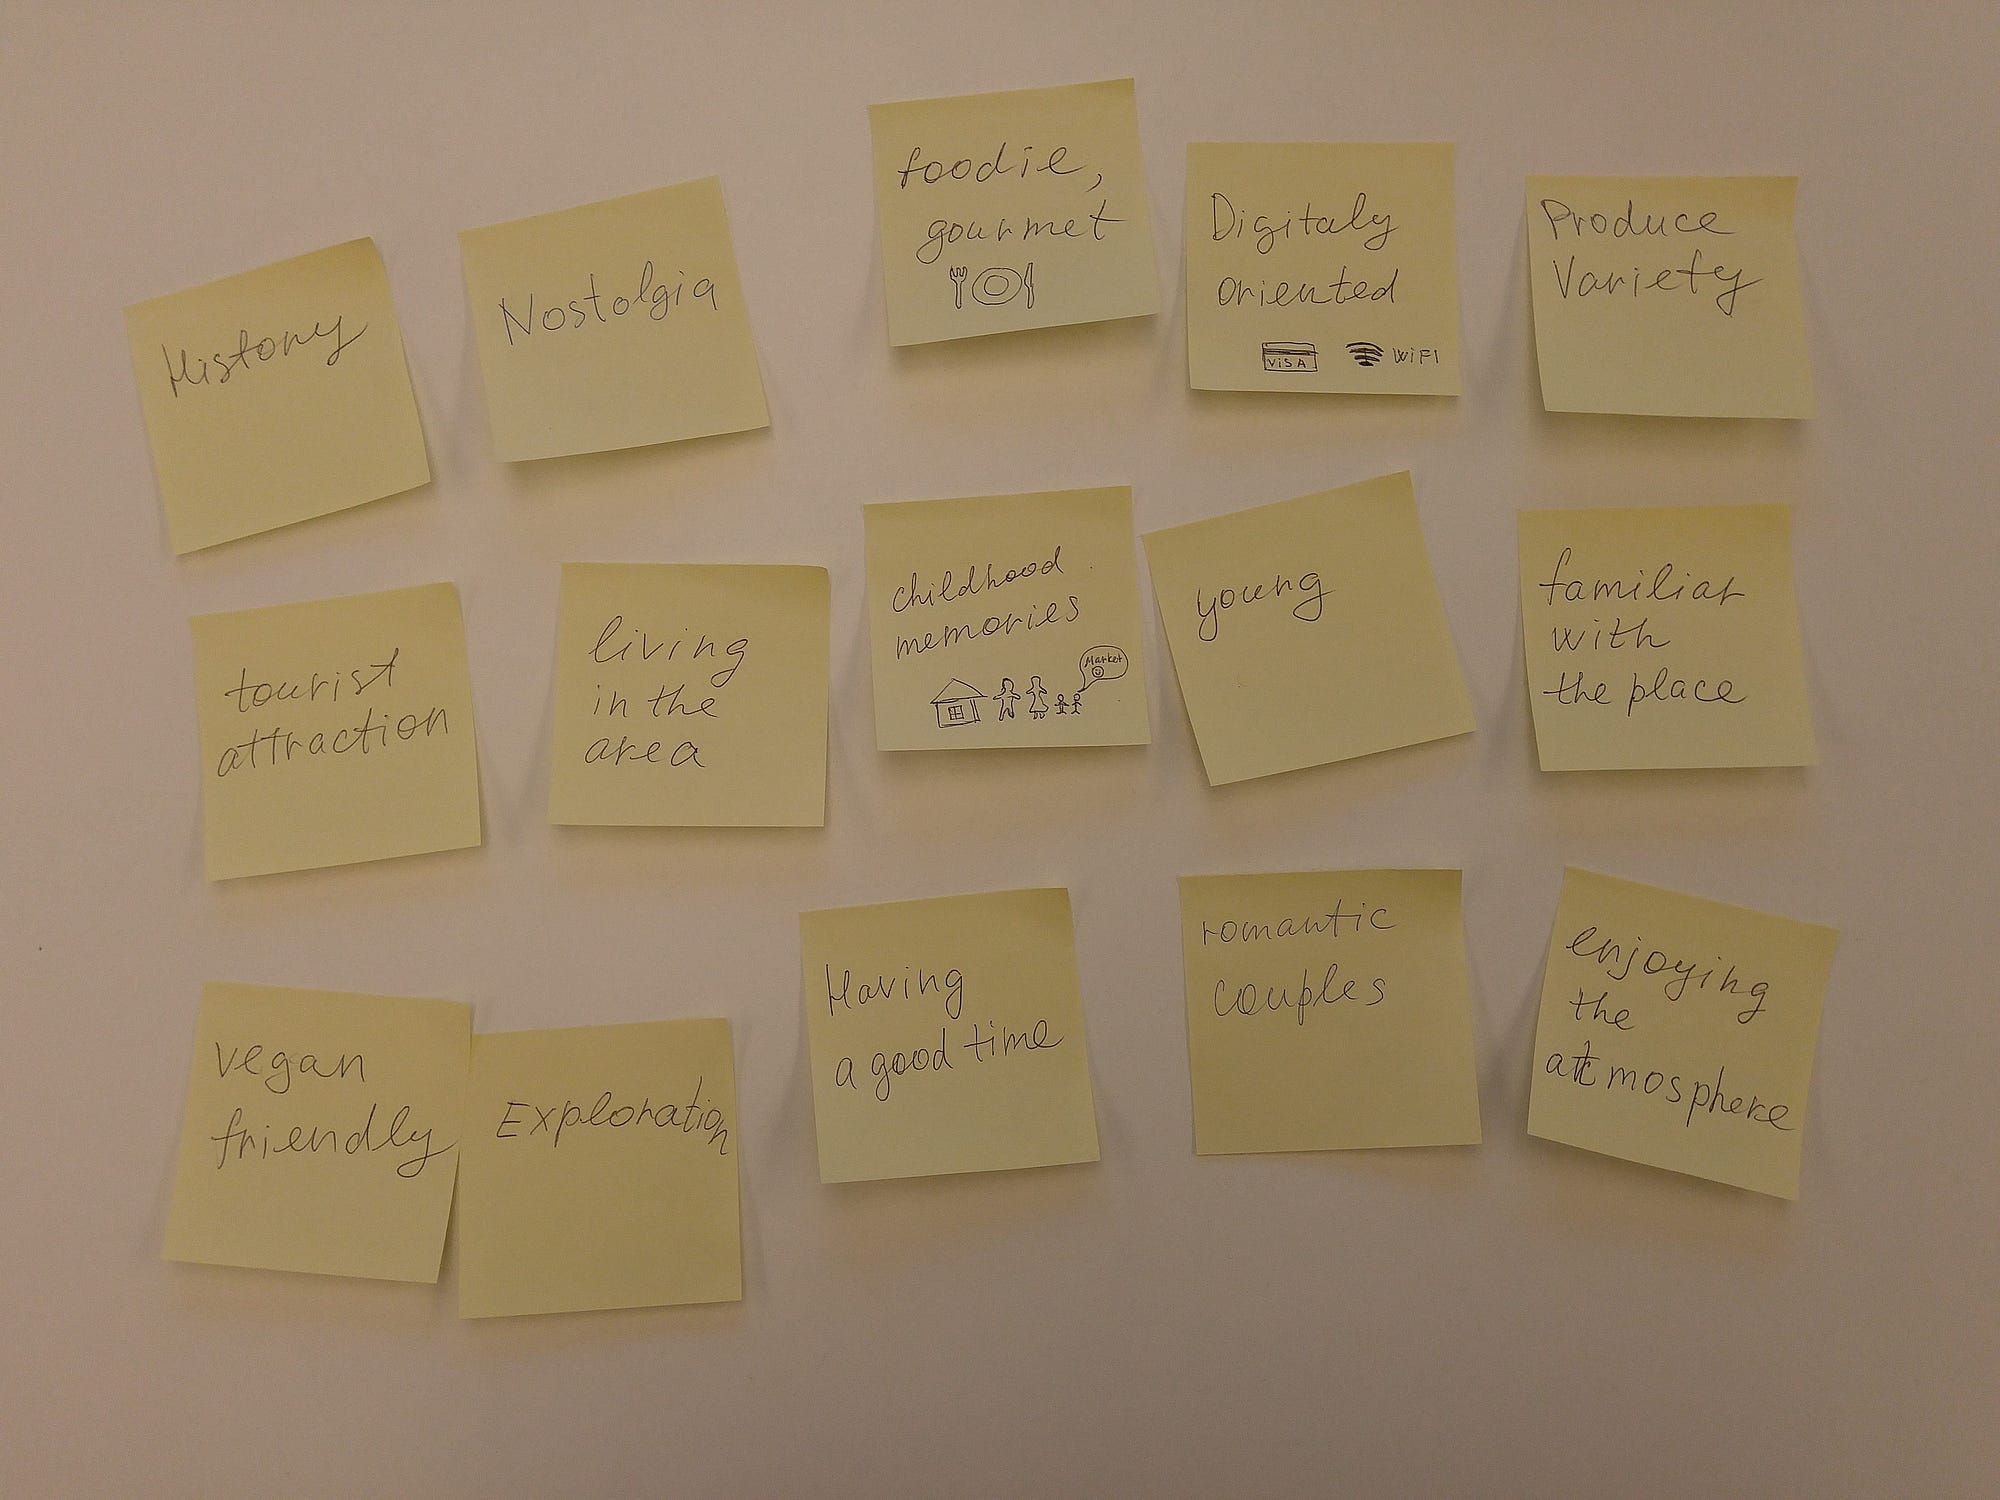 History
Nostolgia
foodie,
gourmet
Digitaly
oriented
VISA
WIFI
Produce
Variety
tourist
attraction
living
in the
area
childhood
memories
Market
young
familiar
with
the place
vegan
friendly
Exploration
Having
a good time
romantic
couples
enjoying
the
atmosphere